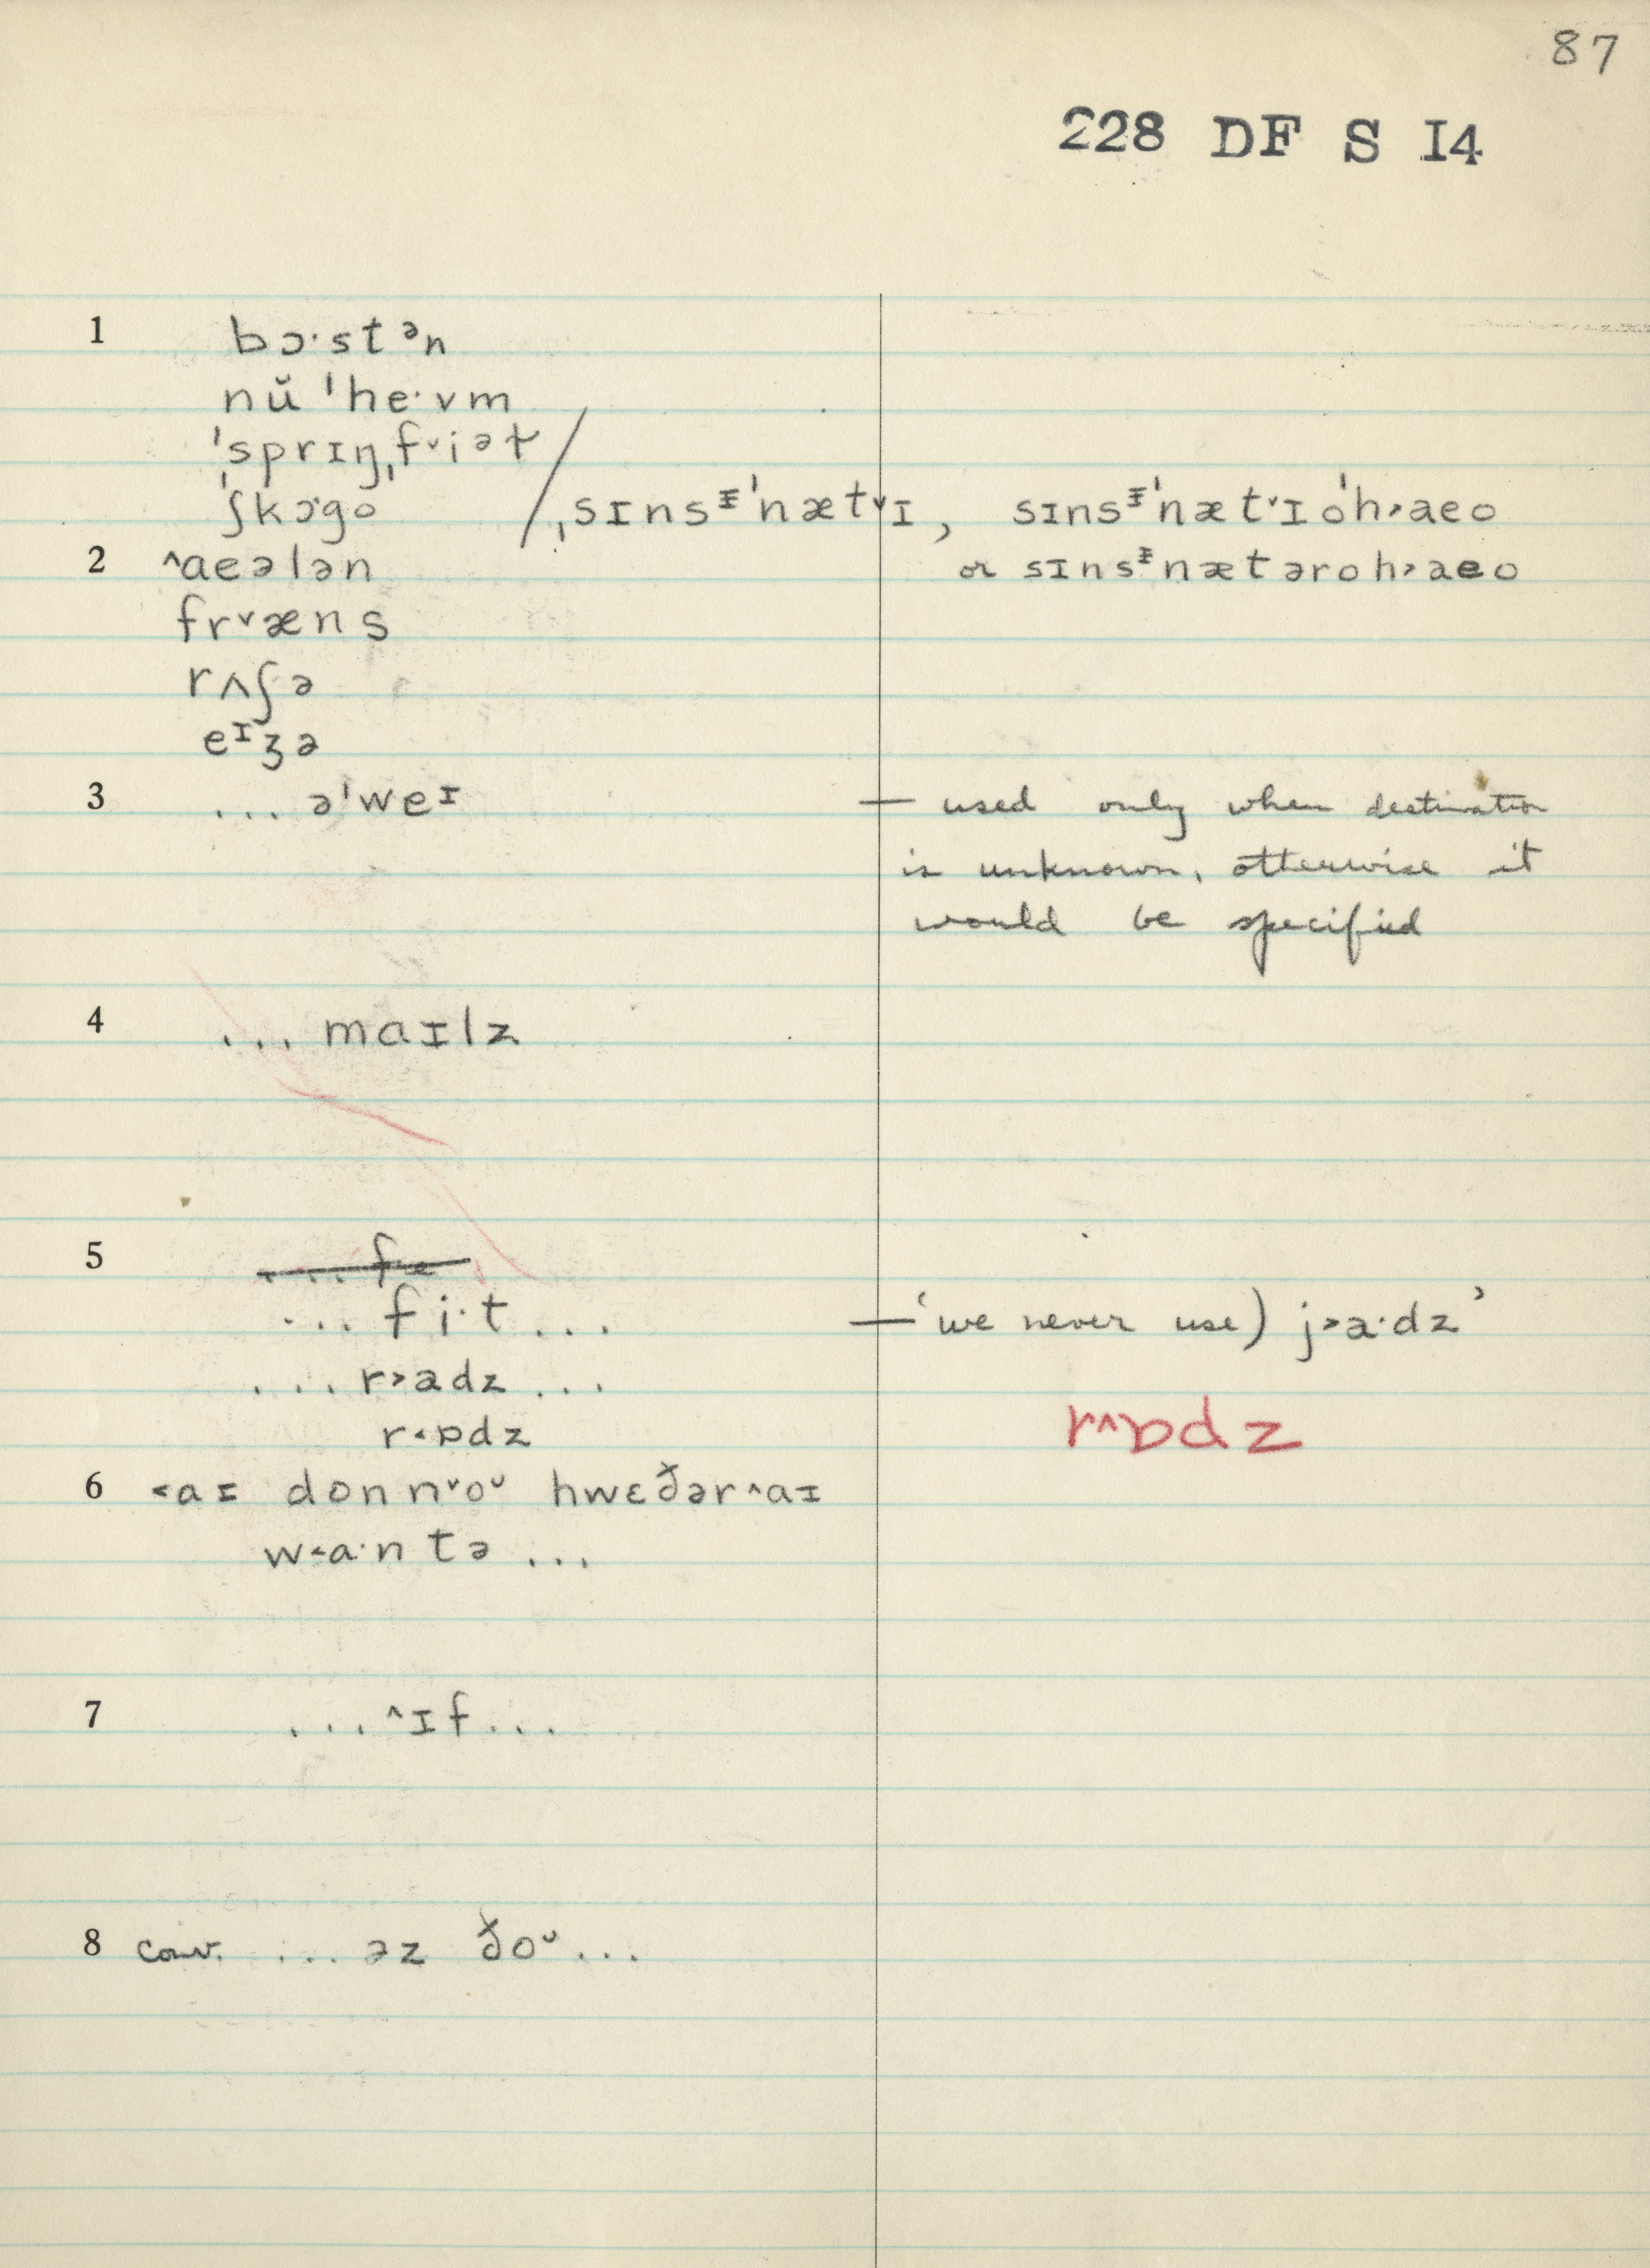 87
228 DF S I4
1 bɔ·stᵊn
nŭ ˈhe·vm
ˈsprɪŋˌf˅iəɫ
ˈʃkɔ·go / ˌsɪnsᵻˈnæt˅ɪ, sɪnsᵻˈnæt˅ɪ oˈh˃aeo
2 ˄aeələn or sɪnsᵻnætəroh˃aeo
fr˅æns
rʌʃə
eᶦʒə
3 ... əˈweᶦ — used only when destination
is unknown, otherwise it
would be specified
4 ... maɪlz
5 ... f
... fi·t ... — ‘we never use) j˃a·dz’
... r˃adz ...
r˂ɒdz r˄ɒdz
6 ˂aɪ donn˅oᵕ hwɛðər˄aɪ
w˂a·ntə ...
7 ... ˄ɪf ...
8 conv. ... əz ðoᵕ ...